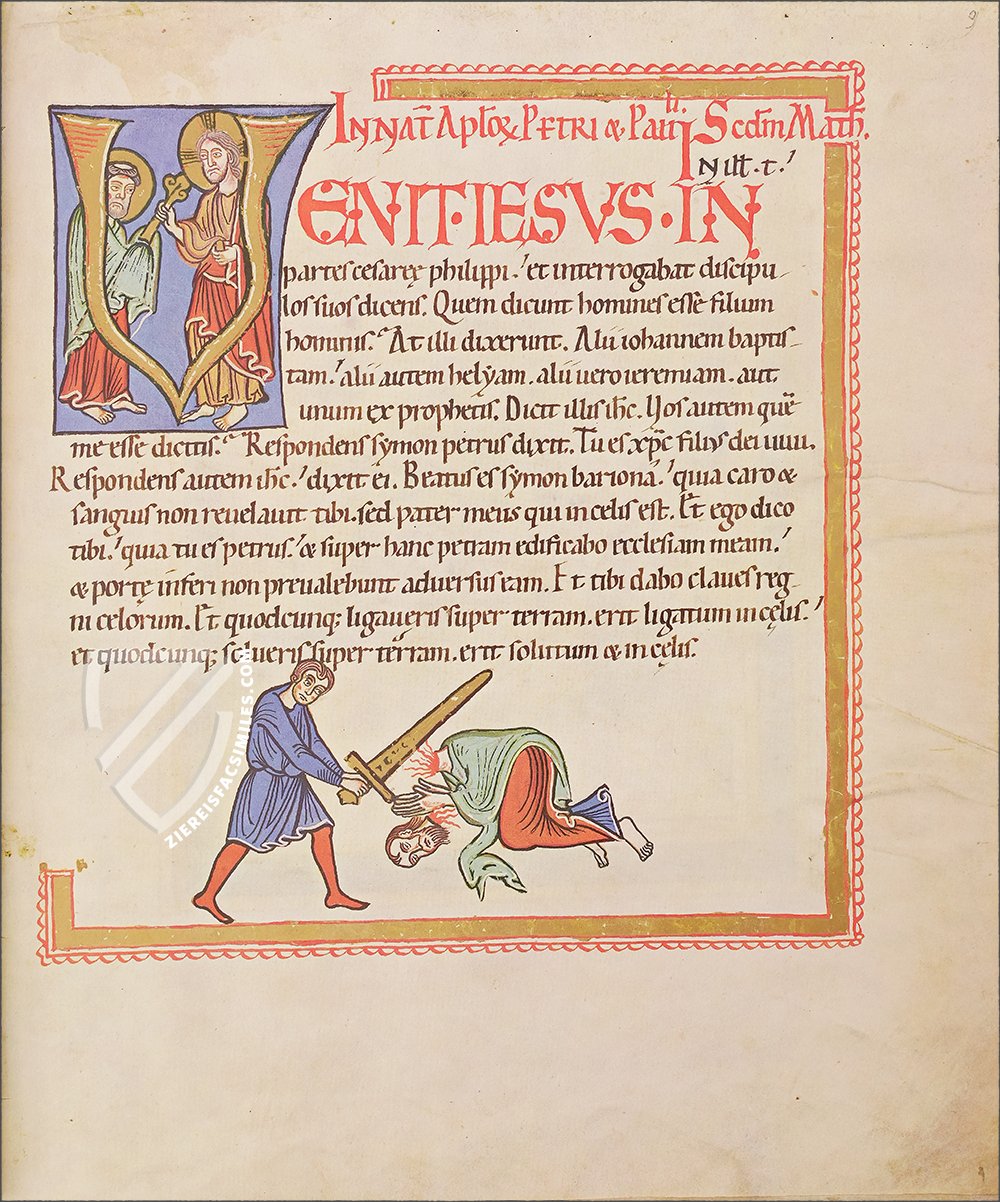 9
In nat̄ Aptox Petri & Pauli Scdm Math.
In ill t.
VENIT IESVS IN
partes cesaręę philippi. et interrogabat discipu
los suos dicens. Quem dicunt homines esse filium
hominis. At illi dixerunt. Alii iohannem baptis
tam. alii autem helẏam. alii uero ieremiam. aut
unum ex prophetis. Dicit illis ihc. Uos autem quē
me esse dicitis. Respondens sẏmon petrus dixit. Tu es xp̄c filius dei uiui.
Respondens autem ihc. dixit ei. Beatus es sẏmon bariona. quia caro &
sanguis non reuelauit tibi. sed pater meus qui in celis est. Et ego dico
tibi. quia tu es petrus. & super hanc petram edificabo ecclesiam meam.
& portę inferi non preualebunt aduersus eam. Et tibi dabo claues reg
ni celorum. Et quodcunq; ligaueris super terram. erit ligatum in cęlis.
et quodcunq; solueris super terram. erit solutum & in cęlis.
ZIEREISFACSIMILES.COM